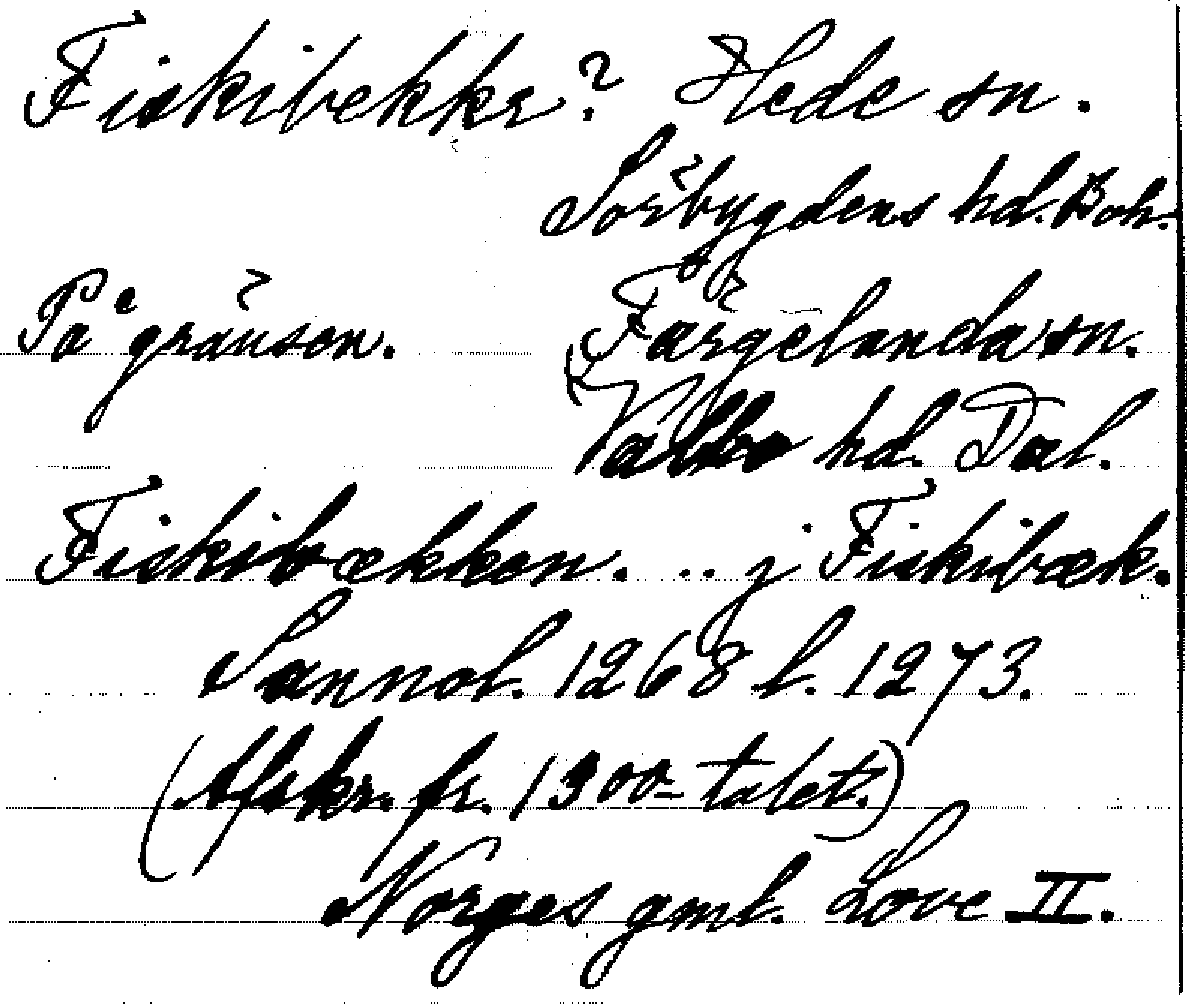 Fiskibekkr? Hede sn.
Sörbygdens hd. Boh.
På gränsen. Färgelanda sn.
Valbo hd. Dal.
Fiskibækken. .. j Fiskibæk.
Sannol. 1268 l. 1273.
(Afskr. fr. 1300-talet.)
Norges gml. Love II.